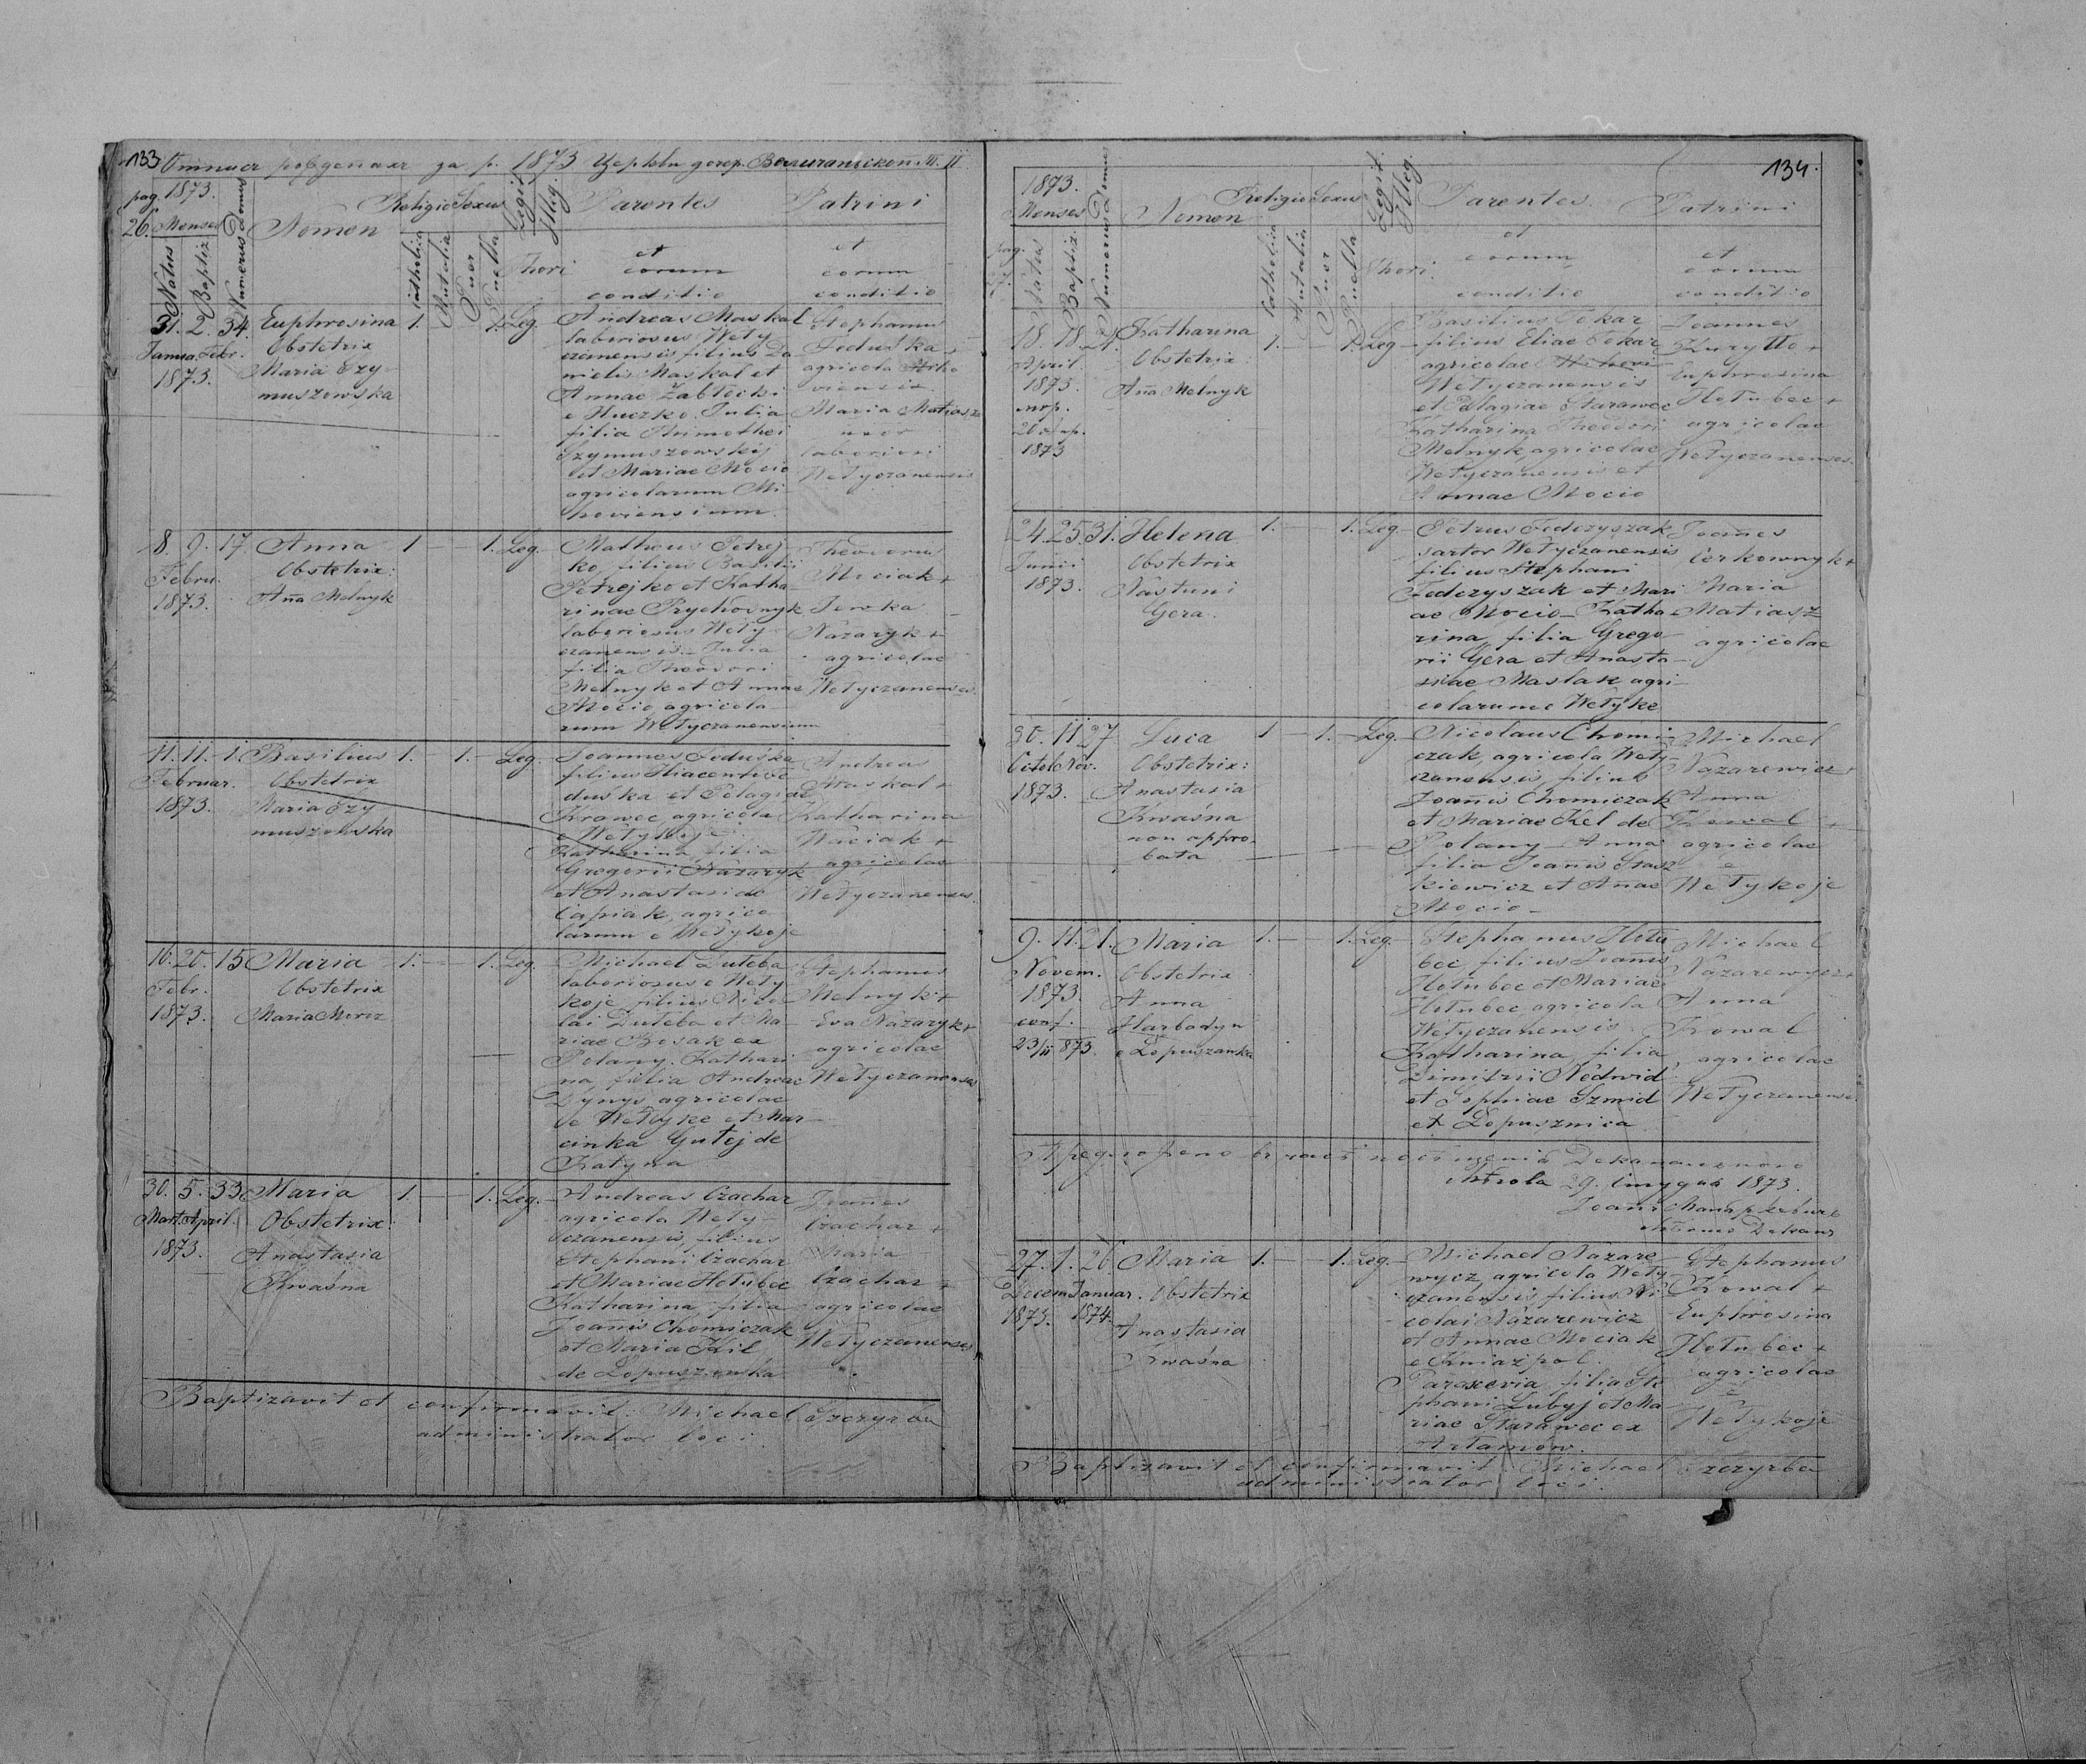 133
1873
pag. 1873.
26. Menses
Natus
Baptiz
Numerus Domus
Nomen
Religio
Catholica
Sexus
Puer
Puella
Legit.
Illeg.
Thori
Parentes
et
eorum
conditio
Patrini
et
eorum
conditio
31. 2. 34. Euphrosina 1. 1. Leg.
Janua. Febr. Obstetrix
1873. Maria Szy
muszowska
Andreas Maskal
laboriosus Wety
czanensis filius Da
nielis Maskal et
Annae Żabłocki
e Huczko. Julia
filia Thimothei
Szymuszowskij
et Mariae Mocio
agricolarum
Stephanus
Feduśka +
agricola
viensis
Maria Matiasz
uxor
laboriosi
Wetyczanensis
8. 9. 17 Anna 1 1. Leg.
Febru. Obstetrix:
1873. Ana Melnyk
Matheus Petrej
ko, filius Basilii
Petrejko et Katha
rinae Prychodnyk
laboriosus Wety
czanensis. Julia
filia Theodori
Melnyk et Annae
Mocio agricola
rum Wetyczanensium
Theodorus
Mociak +
Jewka
Nazaryk +
agricolae
Wetyczanenses
11. 11. 1. Basilius 1. 1. Leg.
Februar. Obstetrix
1873. Maria Szy
muszowska
Joannes Feduśka
filius Hiacenthi Fe
duska et Pelagiae
Krowec, agricola
e Wetykoj
Katharina, filia
Gregorii Nazaryk
et Anastasiae
Capiak, agrico
larum e Wetykoje
Andreas
Maskal +
Katharina
Waciak +
agricolae
Wetyczanenses.
16. 20. 15 Maria 1. 1. Leg.
Febr. Obstetrix
1873. Maria Moroz
Michael Duteba
laboriosus e Wety
koje filius Nico
lai Duteba et Ma
riae Bosak ex
Polany. Kathari
na, filia Andreae
Dynys agricolae
de Wetyke et Mar
cinka Gutej de
Katyna
Stephanus
Melnyk +
Eva Nazaryk +
agricolae
Wetyczanenses
30. 5. 33. Maria 1. 1. Leg.
Mart. April. Obstetrix:
1873. Anastasia
Kwaśna
Andreas Czachar
agricola Wety
czanensis, filius
Stephani Czachar
et Mariae Hołubec
Katharina, filia
Joanis Chomiczak
et Maria Kil
de Łopuszanka
Joanes
Czachar +
Maria
Czachar +
agricolae
Wetyczanenses
Baptizavit et confirmavit: Michael Szczyrba
administrator loci.
134.
1873.
Menses
Natus
Baptiz.
Numerus Domus
Nomen
Religio
Catholica
Sexus
Puer
Puella
Legit.
Illeg.
Thori.
Parentes.
et
eorum
conditio
Patrini
et
eorum
conditio
18. 18. 21. Katharina 1. 1. Leg.
April. Obstetrix
1873. Ana Melnyk
1873
Basilius Tokar
filius Eliae Tokar
agricolae
Wetyczanensis
et Pelagiae Starawec
Katharina Theodori
Melnyk, agricolae
Wetyczanensis et
Annae Mocio
Joannes
Kuryłło +
Euphrosina
Hołubec +
agricolae
Wetyczanenses.
24. 25. 31. Helena 1. 1. Leg.
Junii Obstetrix
1873. Nastuni
Gera.
Petrus Fedczyszak
sartor Wetyczanensis
filius Stephani
Fedczyszak et Mari
ae Mocio. Katha
rina, filia Grego
rii Gera et Anasta
siae Maslak agri
colarum e Wetyke
Joannes
Cerkownyk +
Maria
Matiasz
agricolae
30. 11. 27 Luca 1 1. Leg.
Octob. Nov. Obstetrix:
1873. Anastasia
Kwaśna
non appro
bata
Nicolaus Chomi
czak, agricola Wety
czanensis, filius
Joanis Chomiczak
et Mariae Kel de
Polany. Anna
filia Joanis Stasz
kiewicz et Anae
Mocio
Michael
Nazarewicz
Anna
Kowal +
agricolae
e
Wetykoje
9. 11. 21. Maria 1. 1. Leg.
Novem. Obstetrix
1873. Anna
conf. Harbadyn
23/11 873. e Łopuszanka
Stephanus Hołu
bec, filius Joanis
Hołubec et Mariae
Hołubec agricola
Wetyczanensis.
Katharina, filia
Dimitrii Nedwid
et Sophiae Szmid
ex Łopusznica
Michael
Nazarewycz +
Anna
Kowal
agricolae
Wetyczanenses
1873.
27. 1. 26. Maria 1. 1. Leg.
Decem. Januar. Obstetrix
1873. 1874. Anastasia
Kwaśna
Michael Nazare
wycz, agricola Wety
czanensis, filius Ni
colai Nazarewicz
et Annae Mociak
e Kniażpol.
Paraxevia, filia Ste
phani Lubyj et Ma
riae Starawec ex
Artamow.
Stephanus
Kowal +
Euphrosina
Hołubec +
agricolae
e
Wetykoje
Baptizavit et confirmavit Michael Szczyrba
administrator loci.